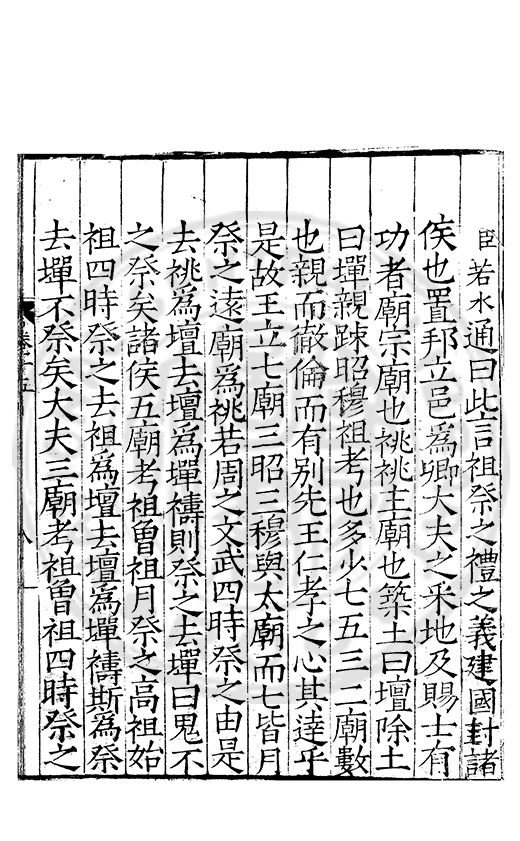 臣若水通曰此言祖祭之禮之義建國封諸
侯也置邦立邑為卿大夫之采地及賜士有
功者廟宗廟也祧祧主廟也築土曰壇除土
曰墠親踈昭穆祖考也多少七五三二廟數
也親而徹倫而有别先王仁孝之心其達乎
是故王立七廟三昭三穆與太廟而七皆月
祭之遠廟為祧若周之文武四時祭之由是
去祧為壇去壇為墠禱則祭之去墠曰鬼不
之祭矣諸侯五廟考祖曾祖月祭之高祖始
祖四時祭之去祖為壇去壇為墠禱斯為祭
去墠不祭矣大夫三廟考祖曾祖四時祭之
八